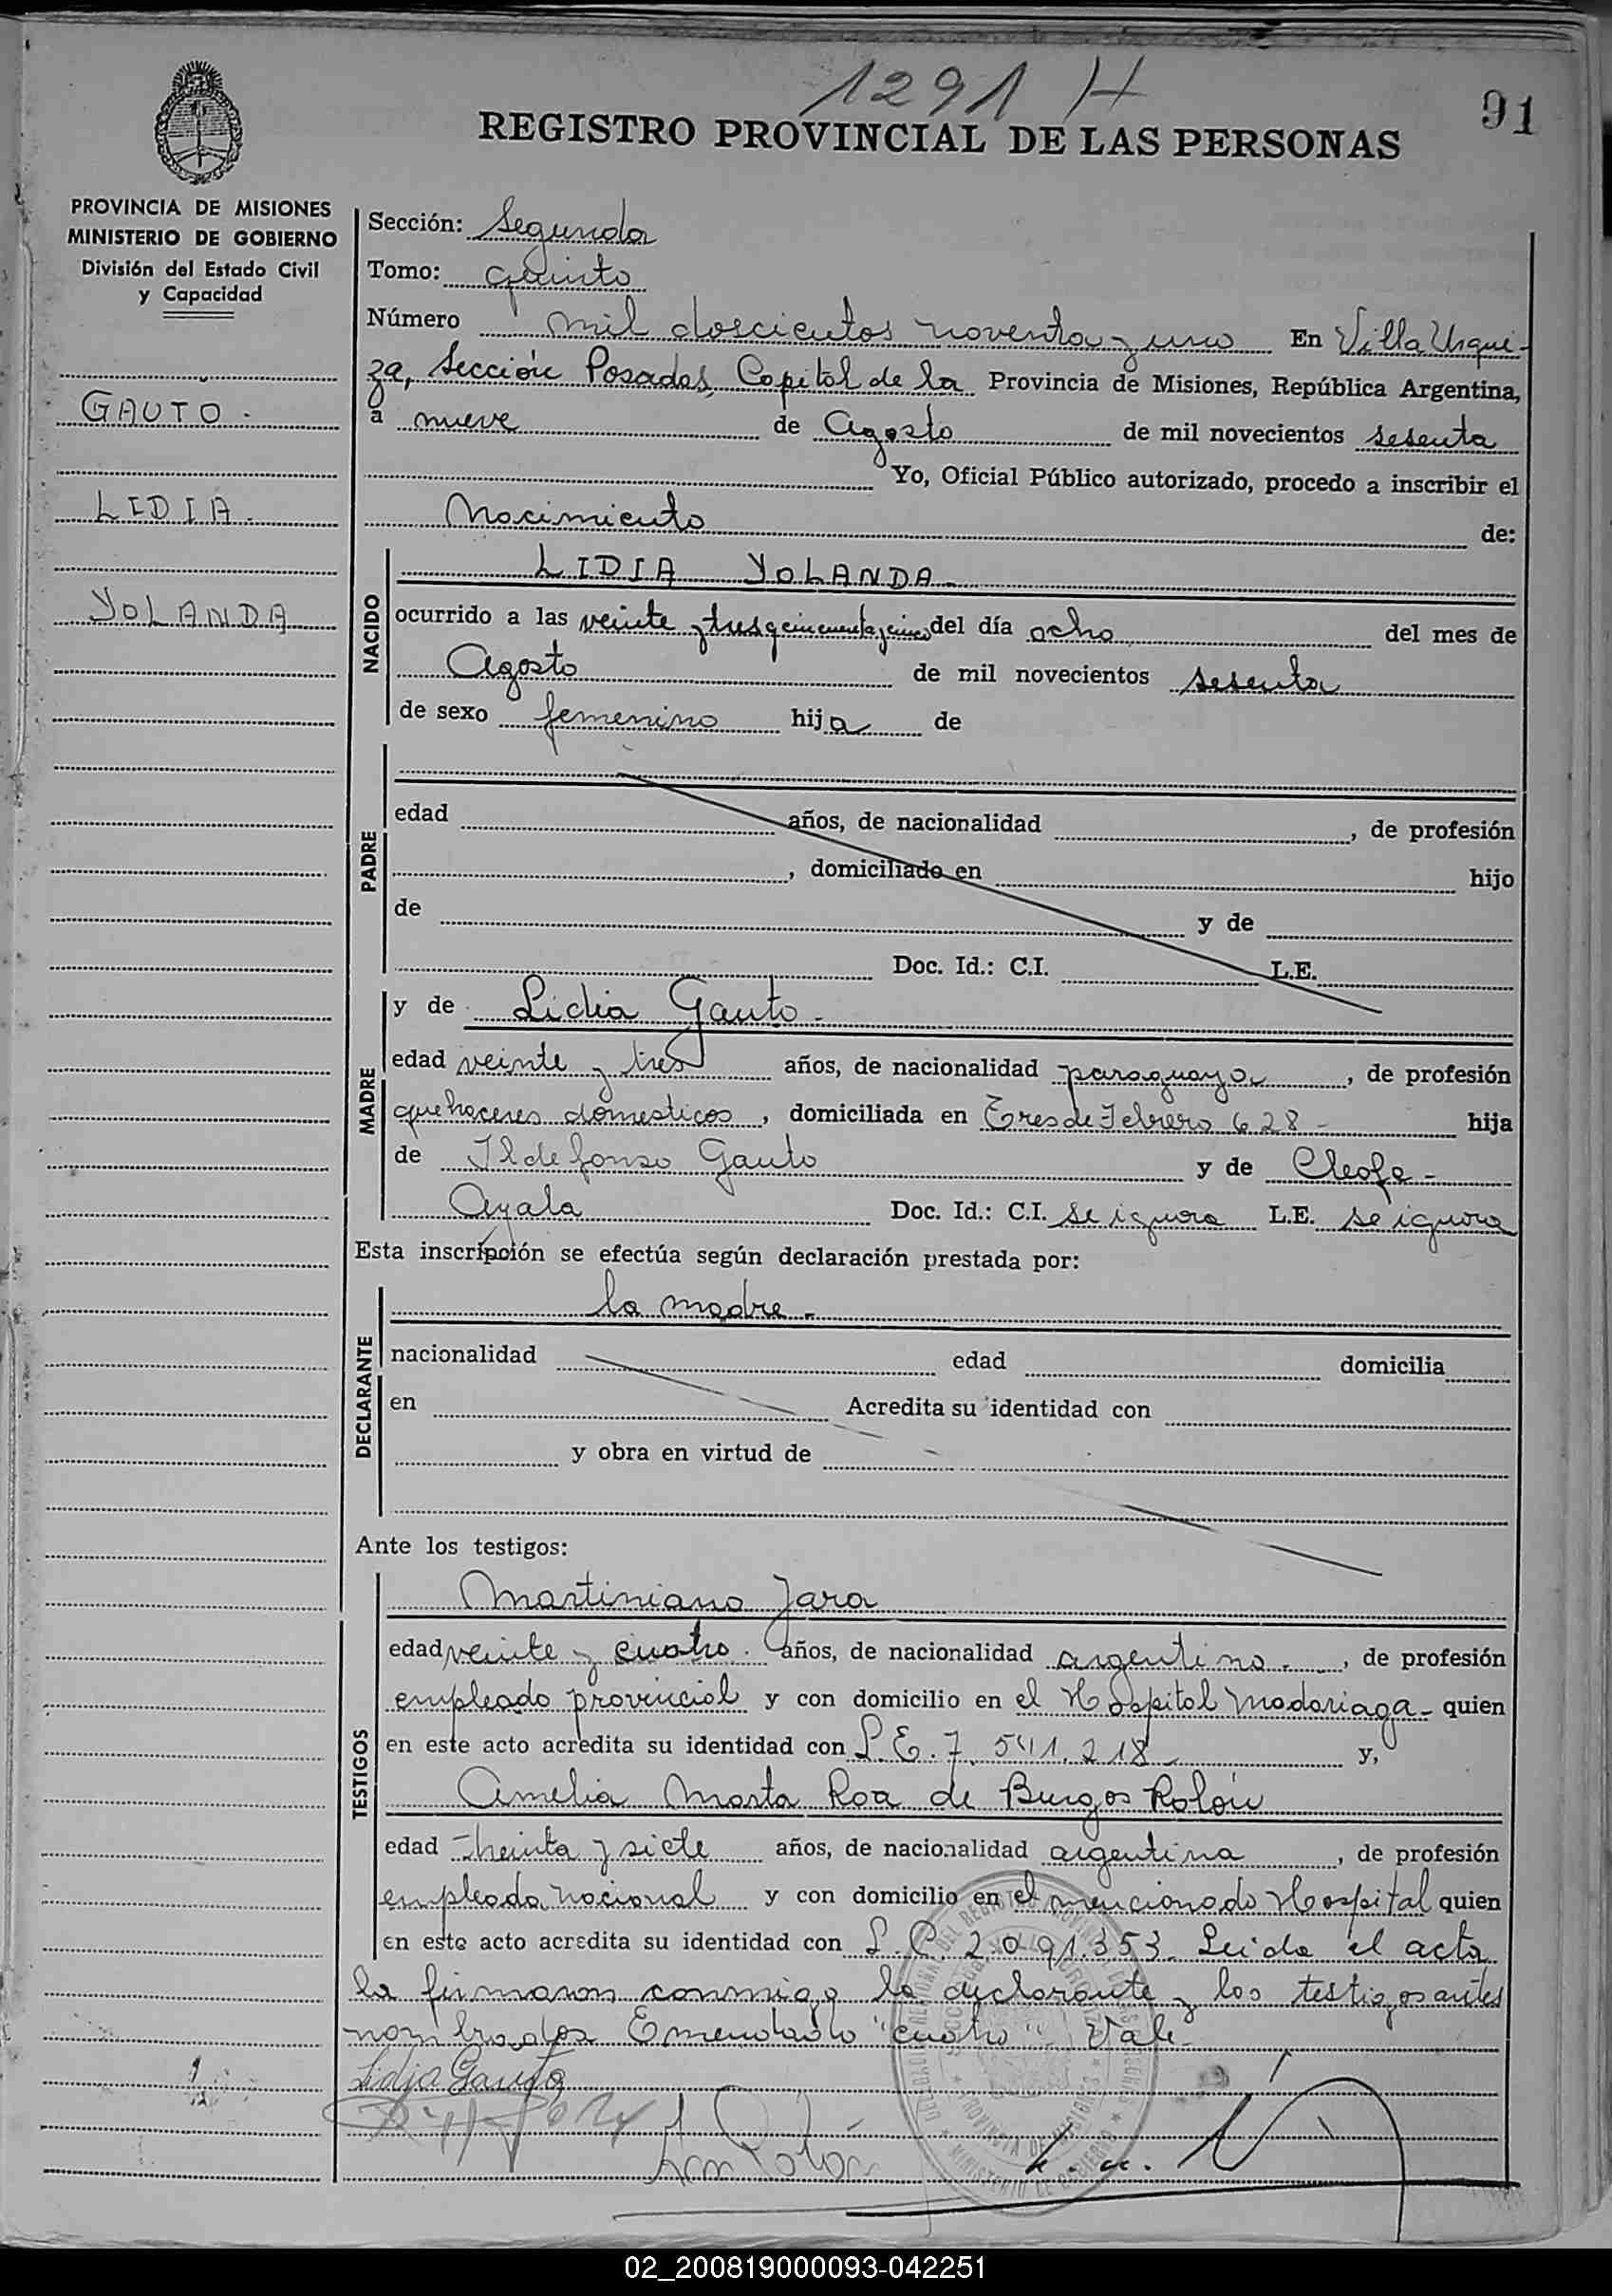 1291 H
91
REGISTRO PROVINCIAL DE LAS PERSONAS
PROVINCIA DE MISIONES
MINISTERIO DE GOBIERNO
División del Estado Civil
y Capacidad
GAUTO.
LIDIA.
YOLANDA
Sección: Segunda
Tomo: quinto
Número mil doscientos noventa y uno En Villa Urqui-
za, Sección Posadas, Capital de la Provincia de Misiones, República Argentina,
a nueve de Agosto de mil novecientos sesenta
Yo, Oficial Público autorizado, procedo a inscribir el
Nacimiento de:
NACIDO
LIDIA YOLANDA
ocurrido a las veinte y tres y cincuenta y cinco del día ocho del mes de
Agosto de mil novecientos sesenta
de sexo femenino hija de
PADRE
edad años, de nacionalidad , de profesión
, domiciliado en hijo
de y de
Doc. Id.: C.I. L.E.
MADRE
y de Lidia Gauto.
edad veinte y tres años, de nacionalidad paraguaya, de profesión
quehaceres domesticos, domiciliada en Tres de Febrero 628 - hija
de Ildefonso Gauto y de Cleofe -
Ayala Doc. Id.: C.I. se ignora L.E. se ignora
Esta inscripción se efectúa según declaración prestada por:
DECLARANTE
la madre -
nacionalidad edad domicilia
en Acredita su identidad con
y obra en virtud de
Ante los testigos:
TESTIGOS
Martiniano Jara
edad veinte y cuatro. años, de nacionalidad argentino, de profesión
empleado provincial y con domicilio en el Hospital Madariaga - quien
en este acto acredita su identidad con L.E. 7.541.218 y,
Amelia Marta Roa de Burgos Rolón
edad treinta y siete años, de nacionalidad argentina, de profesión
empleada nacional y con domicilio en el mencionado Hospital quien
en este acto acredita su identidad con L.C. 2.091.353. Leida el acta
la firmaron conmigo la declarante y los testigos antes
nombrados Emendado "cuatro" Vale -
Lidia Gauto
PROVINCIA DE MISIONES
MINISTERIO DE GOBIERNO
02_200819000093-042251